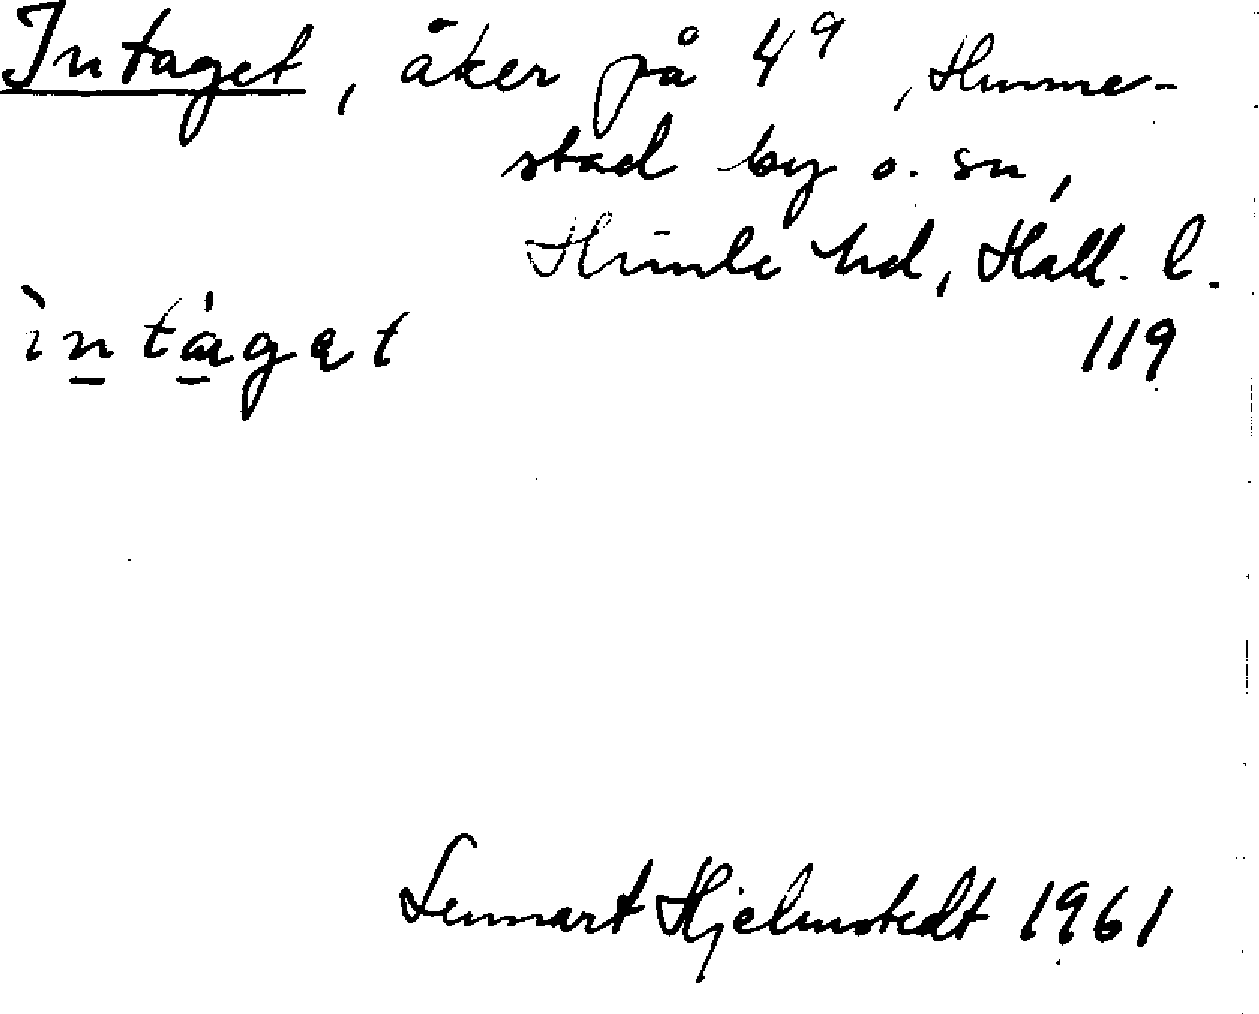 Intaget, åker på 4⁹, Hunne-
stad by o. sn,
Himle hd, Hall. l.
ìntágət 119
Lennart Hjelmstedt 1961